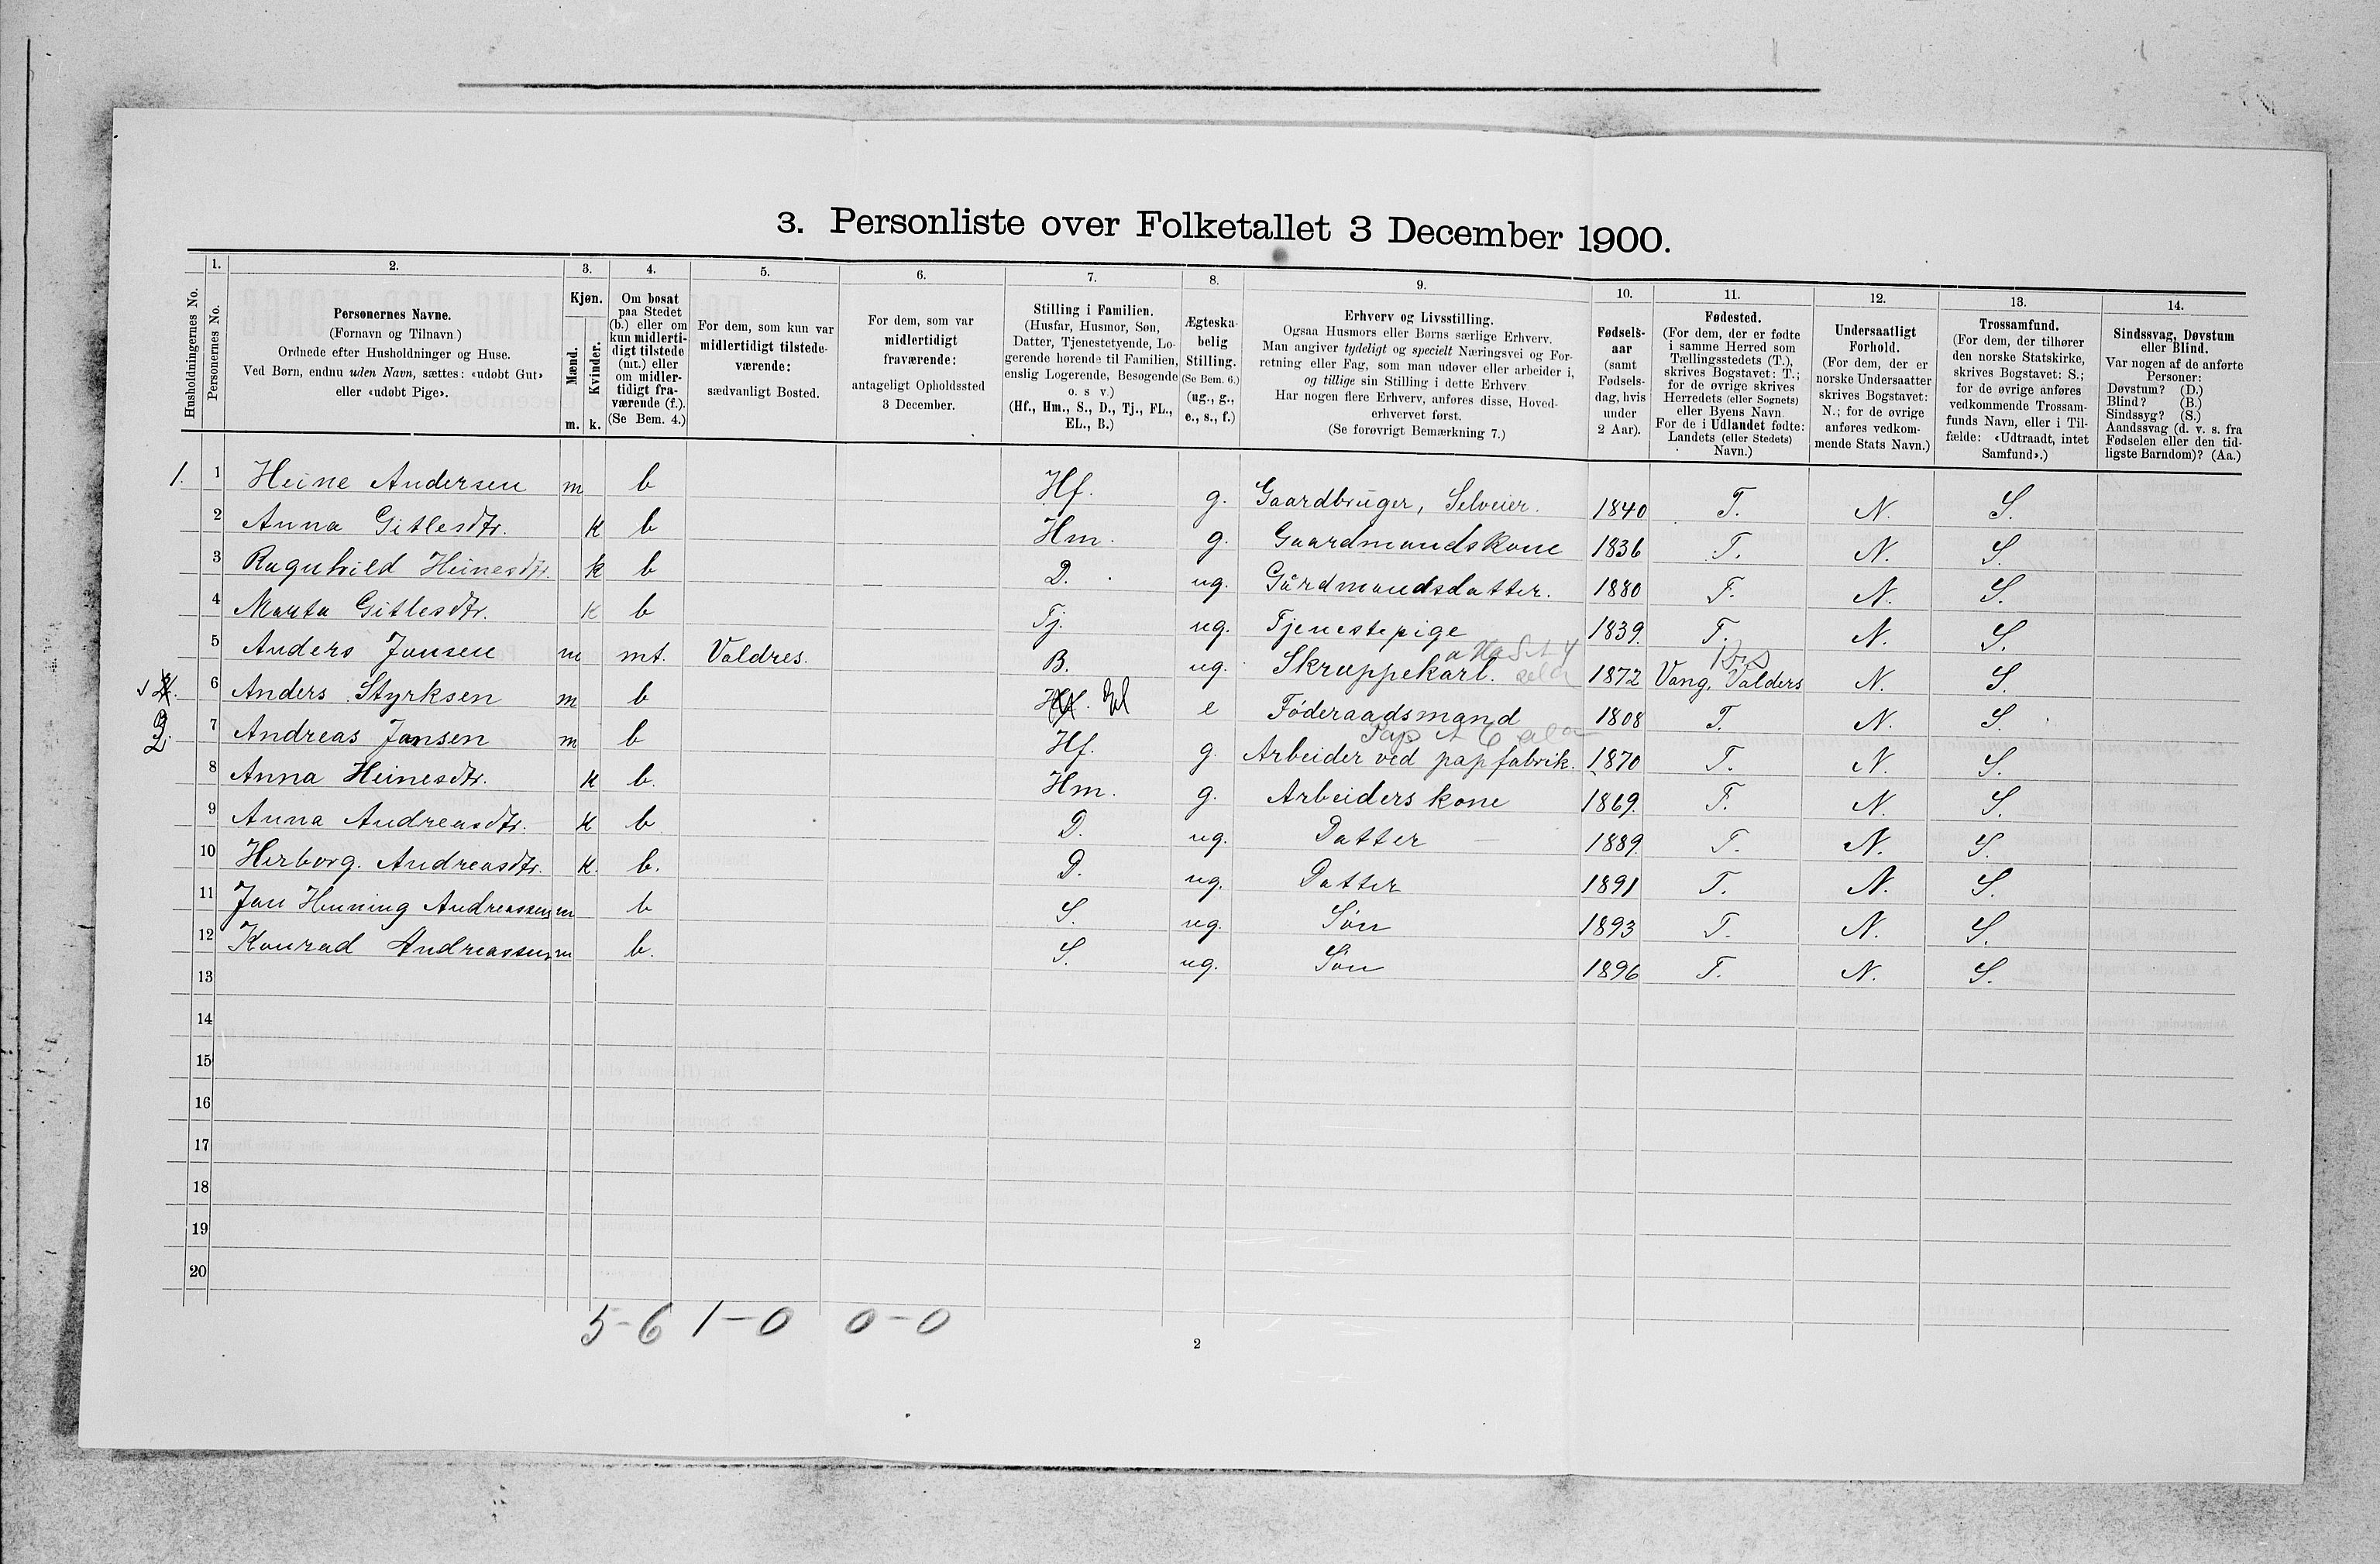 3. Personliste over Folketallet 3 December 1900.
Husholdningernes No.
1. Personernes No.
2. Personernes Navne.
(Fornavn og Tilnavn)
Ordnede efter Husholdninger og Huse.
Ved Børn, endnu uden Navn, sættes: «udøbt Gut»
eller «udøbt Pige».
3. Kjøn.
Mænd. m.
Kvinder. k.
4. Om bosat
paa Stedet
(b.) eller om
kun midlerti-
digt tilstede
(mt.) eller
om midler-
tidigt fra-
værende (f.).
(Se Bem. 4.)
5. For dem, som kun var
midlertidigt tilstede-
værende:
sædvanligt Bosted.
6. For dem, som var
midlertidigt
fraværende:
antageligt Opholdssted
3 December.
7. Stilling i Familien.
(Husfar, Husmor, Søn,
Datter, Tjenestetyende, Lo-
gerende hørende til Familien,
enslig Logerende, Besøgende
o. s v.)
(Hf., Hm., S., D., Tj., FL.,
EL., B.)
8. Ægteska-
belig
Stilling.
(Se Bem. 6.)
(ug., g.,
e., s., f.)
9. Erhverv og Livsstilling.
Ogsaa Husmors eller Børns særlige Erhverv.
Man angiver tydeligt og specielt Næringsvei og For-
retning eller Fag, som man udøver eller arbeider i,
og tillige sin Stilling i dette Erhverv
Har nogen flere Erhverv, anføres disse, Hoved-
erhvervet først.
(Se forøvrigt Bemærkning 7.)
10. Fødsels-
aar
(samt
Fødsels-
dag, hvis
under
2 Aar).
11. Fødested.
(For dem, der er fødte
i samme Herred som
Tællingsstedets (T.),
skrives Bogstavet: T.;
for de øvrige skrives
Herredets (eller Sognets)
eller Byens Navn
For de i Udlandet fødte:
Landets (eller Stedets)
Navn.)
12. Undersaatligt
Forhold.
(For dem, der er
norske Undersaatter
skrives Bogstavet:
N.; for de øvrige
anføres vedkom-
mende Stats Navn.)
13. Trossamfund.
(For dem, der tilhører
den norske Statskirke,
skrives Bogstavet: S.;
for de øvrige anføres
vedkommende Trossam-
funds Navn, eller i Til-
fælde: «Udtraadt, intet
Samfund».)
14. Sindssvag, Døvstum
eller Blind.
Var nogen af de anførte
Personer:
Døvstum? (D.)
Blind? (B.)
Sindssyg? (S.)
Aandssvag (d. v. s. fra
Fødselen eller den tid-
ligste Barndom)? (Aa.)
1. 1 Heine Andersen m b Hf. g. Gaardbruger, Selveier. 1840 T. N. S.
2 Anna Gitlesdtr. k b Hm. g. Gaardmandskone 1836 T. N. S.
3 Ragnhild Heinesdtr. k b D. ug. Gårdmandsdatter. 1880 T. N. S.
4 Marta Gitlesdtr. k b Tj. ug. Tjenestepige 1839. T. N. S.
5 Anders Jonsen m mt. Valdres. B. ug. Skruppekarl. 1872 Vang, Valders N. S.
6 Anders Styrksen m b Hf. El e Føderaadsmand 1808 T. N. S.
2. 7 Andreas Jansen m b Hf. g. Arbeider ved papfabrik. 1870 T. N. S.
8 Anna Heinesdtr. k b. Hm. g. Arbeiders kone 1869. T. N. S.
9 Anna Andreasdtr. k b D. ug. Datter 1889. T. N. S.
10 Herborg. Andreasdtr. k. b. D. ug. Datter 1891 T. N. S.
11 Jan Henning Andreassen m b S. ug. Søn 1893 T. N. S.
12 Konrad Andreassen m b. S. ug. Søn 1896 T. N. S.
13
14
15
16
17
18
19
20
5-6 1-0 0-0
2